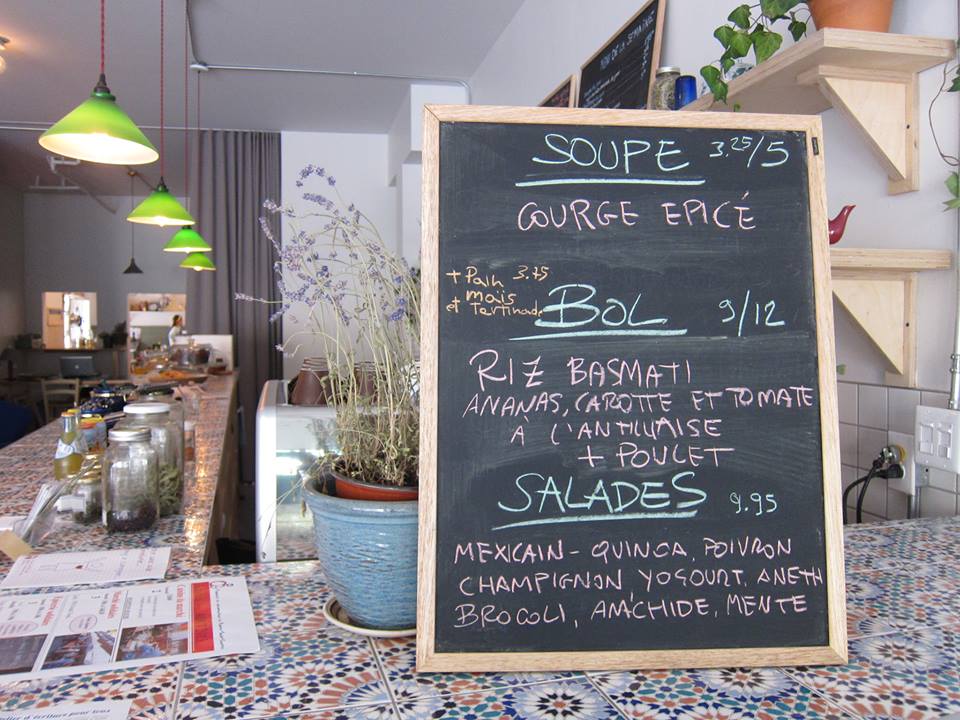 MENU DE LA SEMAINE
SOUPE 3.25/5
COURGE EPICÉ
+ Pain 3.75
maïs
et Tartinade
BOL 9/12
RIZ BASMATI
ANANAS, CAROTTE ET TOMATE
A L'ANTILLAISE
+ POULET
SALADES 9.95
MEXICAIN - QUINOA, POIVRON
CHAMPIGNON YOGOURT, ANETH
BROCOLI, ARACHIDE, MENTE